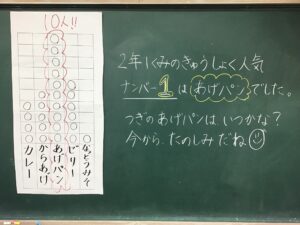 10人!!
カレー
からあげ
あげパン
ゼリー
なっとうみそ
2年1くみのきゅうしょく人気
ナンバー1はあげパンでした。
つぎのあげパンはいつかな?
今から、たのしみだね